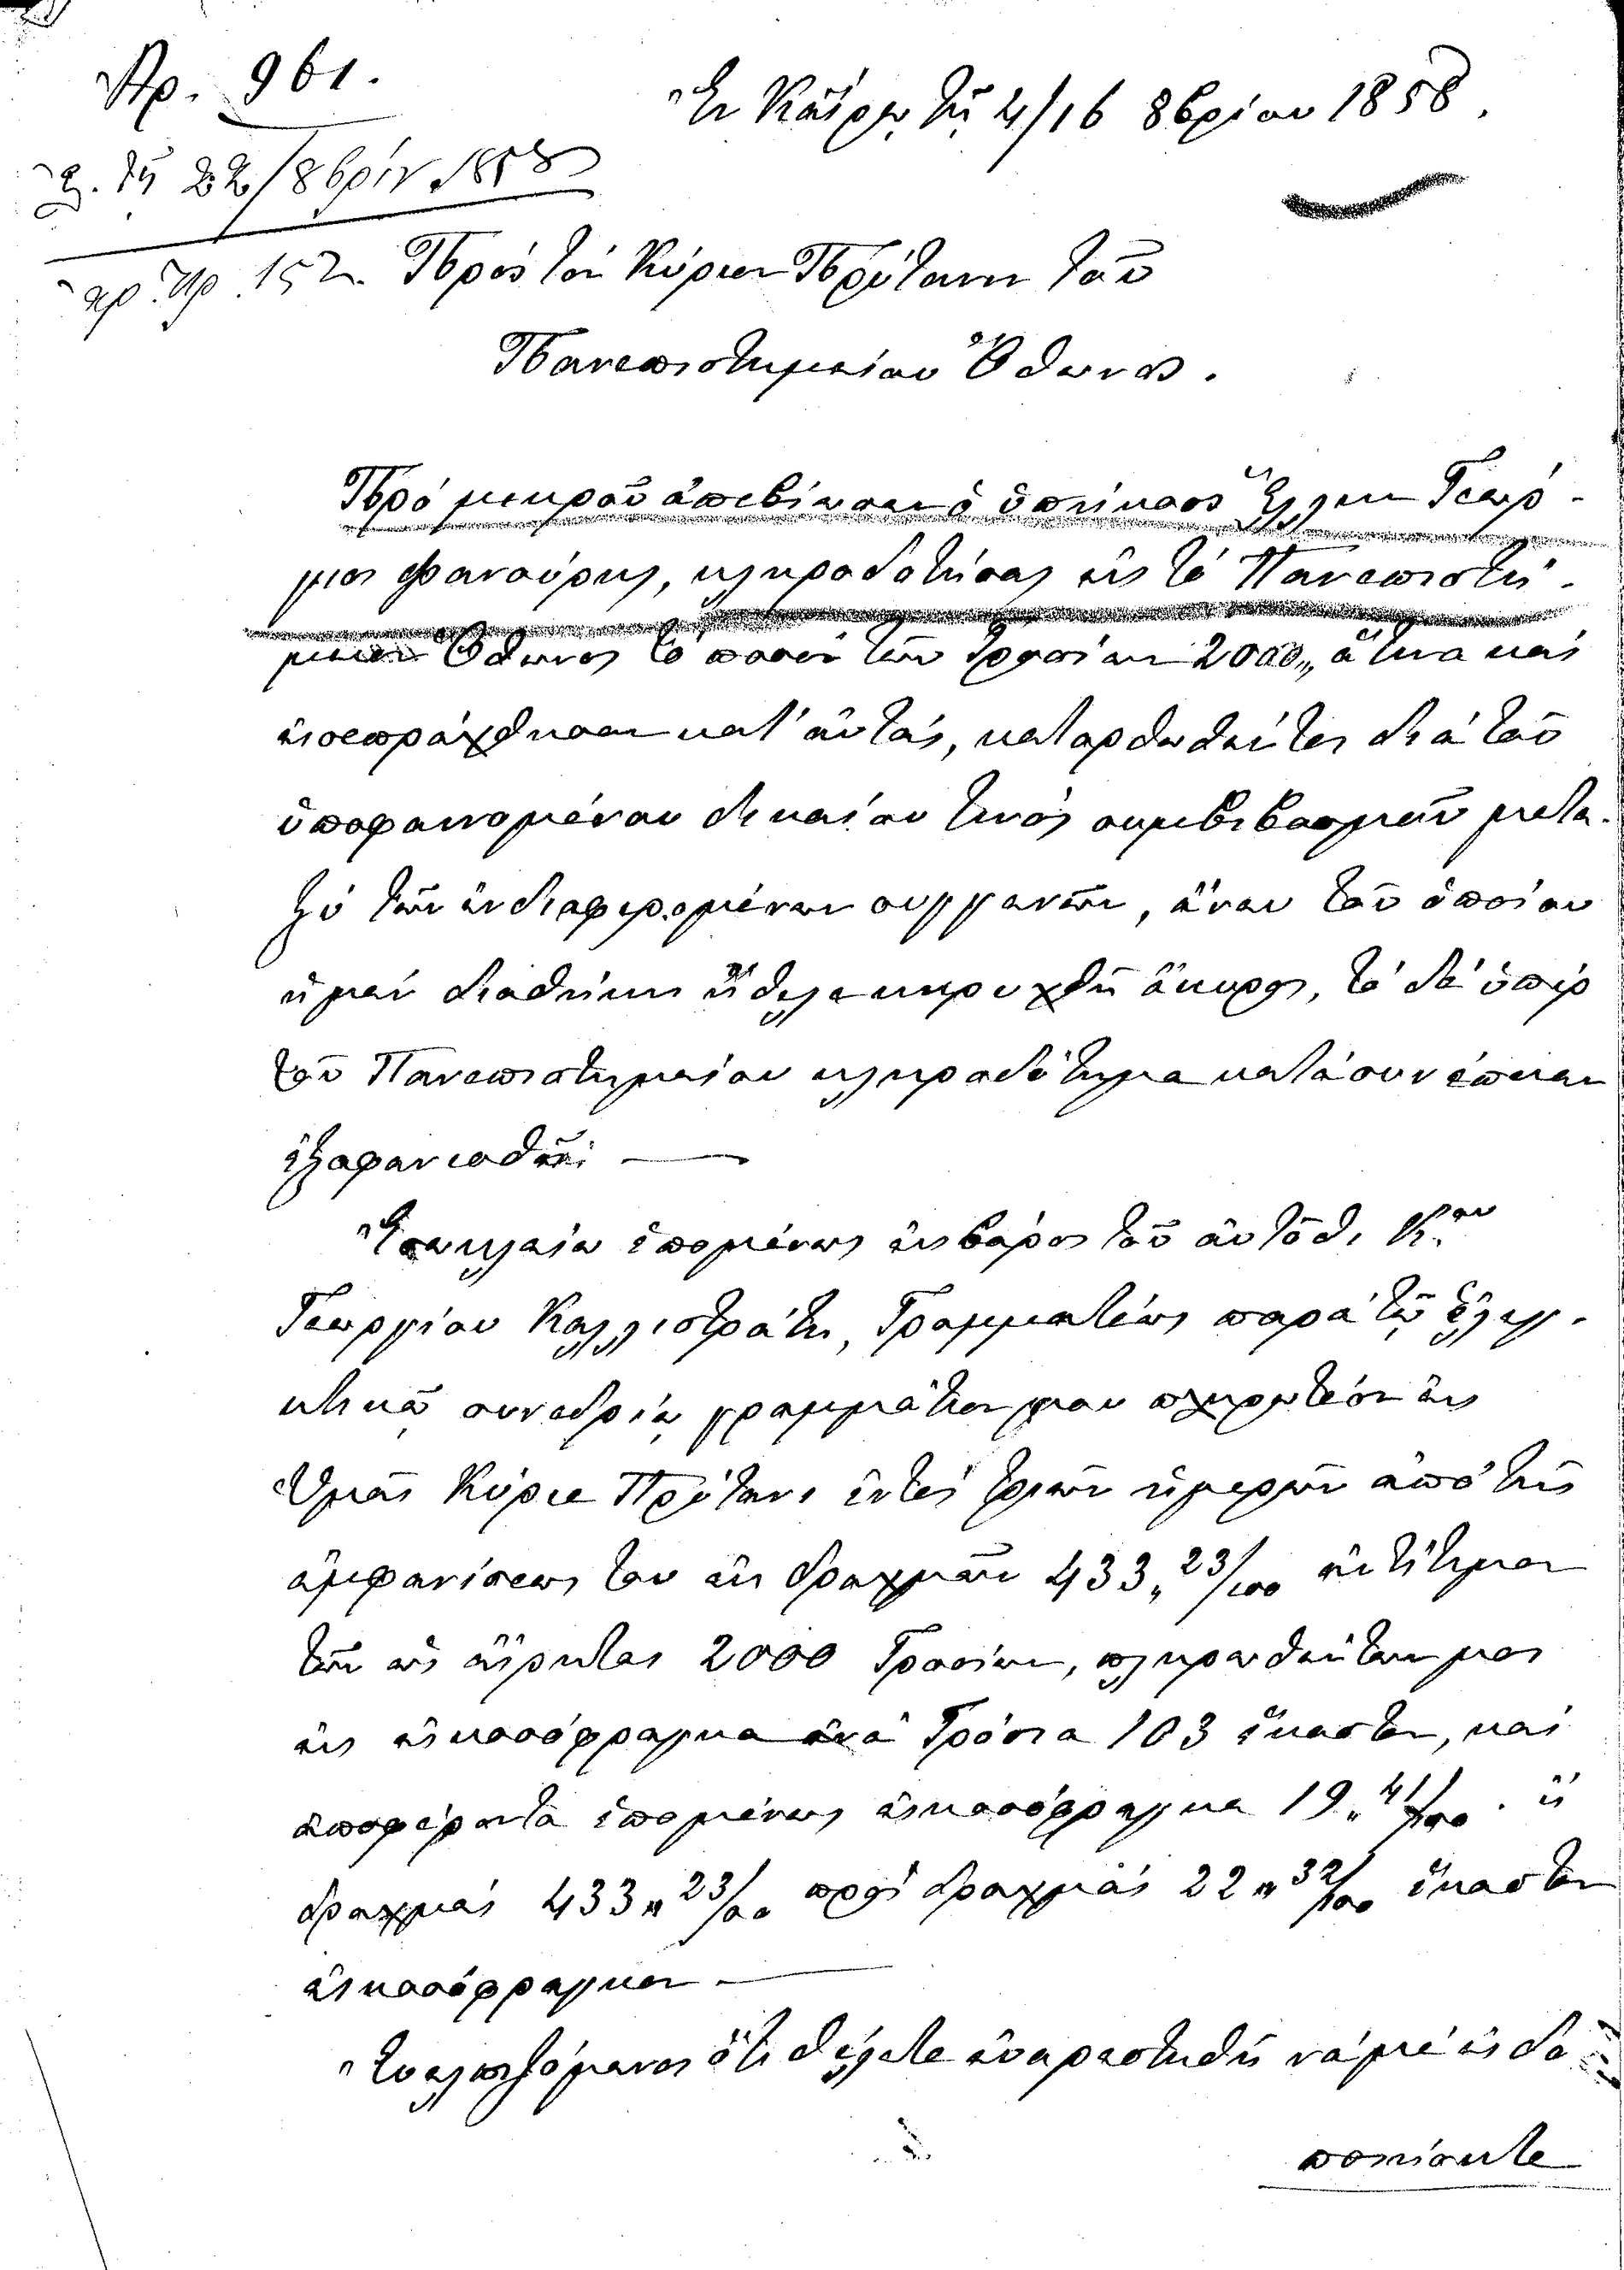 Ἀρ. 961.
Ἐν Καΐρῳ τῇ 4/16 8βρίου 1858.
τῇ 22/8βρίου 1858
πρ. Ἀρ. 152.
Πρὸς τὸν Κύριον Πρύτανιν τοῦ
Πανεπιστημείου Ὄθωνος.
Πρὸ μικροῦ ἀπεβίωσεν ὁ ὑπήκοος Ἕλλην Γεώρ-
γιος Φανούρης, κληροδοτήσας εἰς τὸ Πανεπιστή-
μειον Ὄθωνος τὸ ποσὸν τῶν Γροσίων 2000,, ἅτινα καὶ
εἰσεπράχθησαν κατ' αὐτάς, κατορθωθέντος διὰ τοῦ
ὑποφαινομένου δικαίου τινὸς συμβιβασμοῦ μετα-
ξὺ τῶν ἐνδιαφερομένων συγγενῶν, ἄνευ τοῦ ὁποίου
ἡ μὲν διαθήκη ἤθελε κηρυχθῆ ἄκυρος, τὸ δὲ ὑπὲρ
τοῦ Πανεπιστημείου κληροδότημα κατὰ συνέπειαν
ἐξαφανισθῆ.
Ἐν Κλεία ἑπομένως εἰς βάρος τοῦ αὐτόθι Κ.ου
Γεωργίου Καλλιστράτη, Γραμματέως παρὰ τῷ Ἐλεγ-
κτικῷ συνεδρίῳ γραμμάτιόν μου πληρωτέον εἰς
Ὑμᾶς Κύριε Πρύτανι ἐντὸς τριῶν ἡμερῶν ἀπὸ τῆς
ἐμφανίσεώς του ἐκ δραχμῶν 433,, 23/100 ἀντίτιμον
τῶν ὡς εἴρηται 2000 Γροσίων, πληρωθέντων μοι
εἰς εἰκοσόφραγκα ἀνὰ Γρόσια 103 ἕκαστον, καὶ
ἀποφέροντα ἑπομένως εἰκοσόφραγκα 19,, 41/100. ἢ
δραχμὰς 433,, 23/100 πρὸς δραχμὰς 22,, 32/100 ἕκαστον
εἰκοσόφραγκον
Εὐελπιζόμενος ὅτι θέλετε εὐαρεστηθῆ νὰ μὲ εἰδο-
ποιήσητε